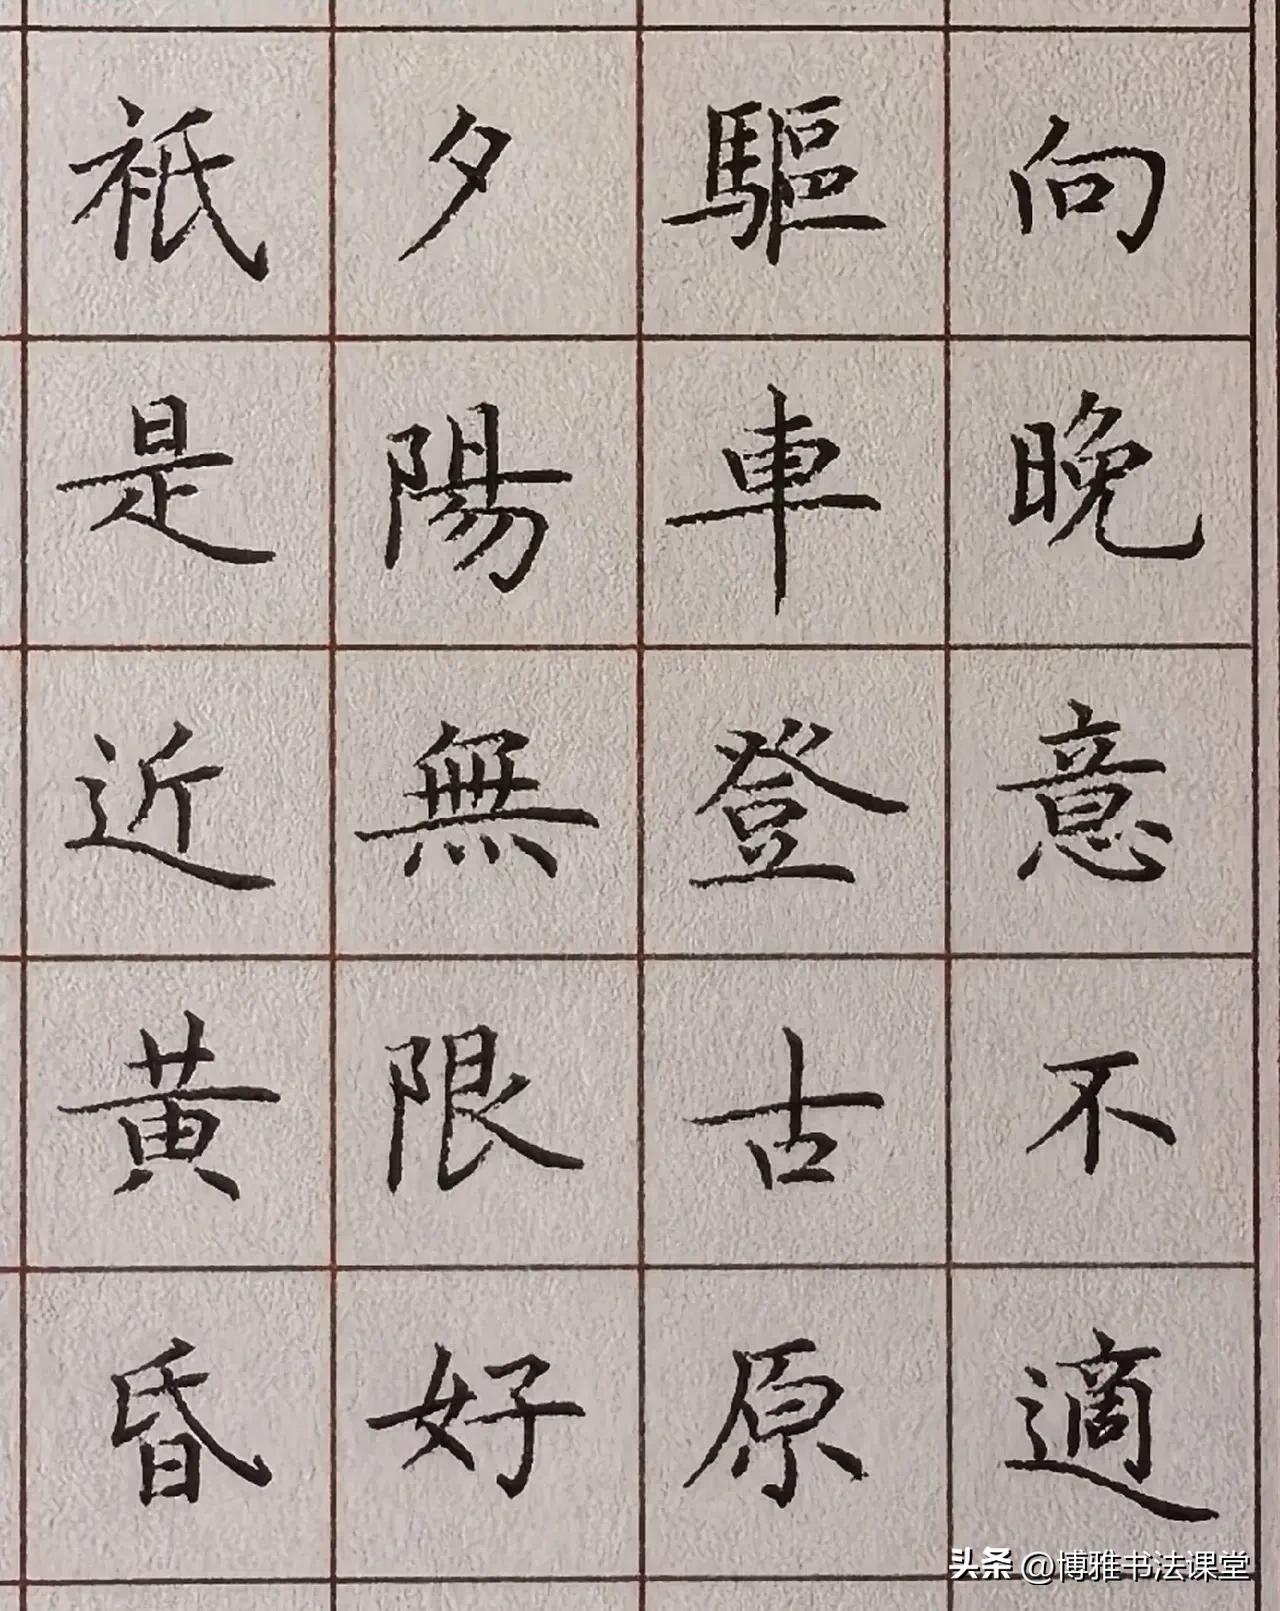 向晚意不適
驅車登古原
夕陽無限好
衹是近黃昏
头条 @博雅书法课堂